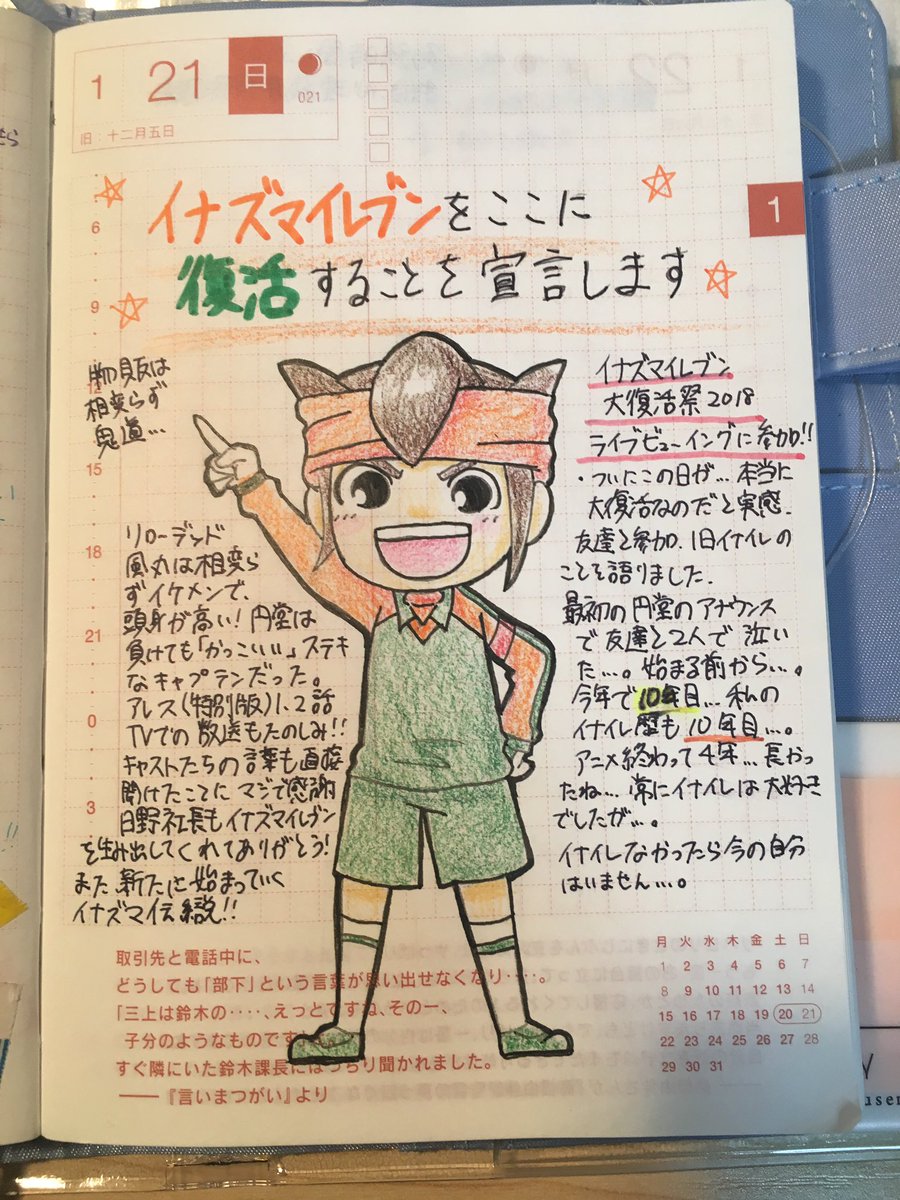 1 21 日
021
旧：十二月五日
1
イナズマイレブンをここに
復活することを宣言します
6
9
15
18
21
0
3
物販は
相変らず
鬼道…
リローデッド
風丸は相変ら
ずイケメンで、
頭身が高い！円堂は
負けても「かっこいい」ステキ
なキャプテンだった。
アレス(特別版)1、2話
TVでの放送もたのしみ!!
キャストたちの言葉も直接
聞けたことに マジで感謝
日野社長もイナズマイレブン
を生み出してくれてありがとう！
また 新たに始まっていく
イナズマ伝説!!
イナズマイレブン
大復活祭2018
ライブビューイングに参加!!
・ついにこの日が…本当に
大復活なのだと実感.
友達と参加、旧イナイレの
ことを語りました.
最初の円堂のアナウンス
で友達と2人で泣い
た…。始まる前から…。
今年で10年目…私の
イナイレ歴も10年目…。
アニメ終わって4年…長かっ
たね…常にイナイレは大好き
でしたが…。
イナイレなかったら今の自分
はいません…。
取引先と電話中に、
どうしても「部下」という言葉が思い出せなくなり‥‥。
「三上は鈴木の‥‥、えっとですね、その一、
子分のようなものです
すぐ隣にいた鈴木課長にばっちり聞かれました。
――『言いまつがい』より
月 火 水 木 金 土 日
1 2 3 4 5 6 7
8 9 10 11 12 13 14
15 16 17 18 19 20 21
22 23 24 25 26 27 28
29 30 31